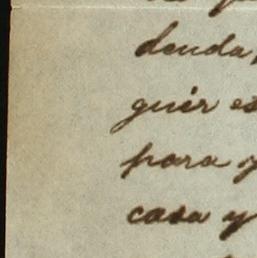 deuda,
guir es
para y
casa y